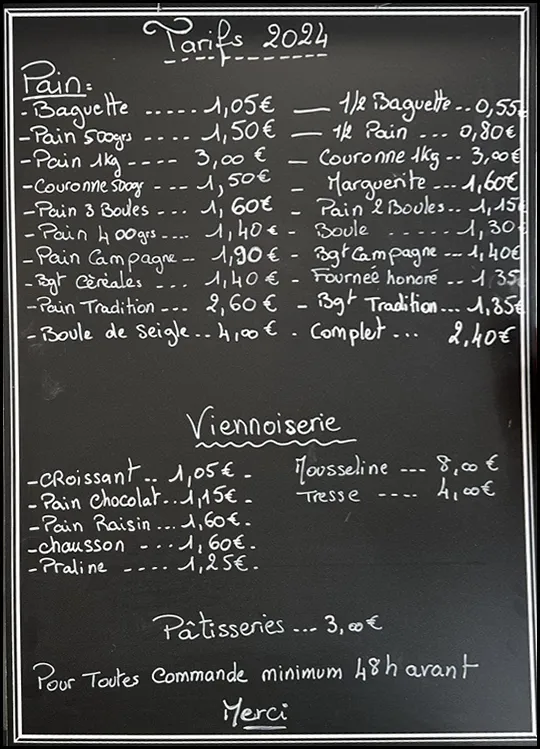 Tarifs 2024
Pain:
- Baguette ..... 1,05€ — 1/2 Baguette .. 0,55€
- Pain 500grs ... 1,50€ — 1/2 Pain ... 0,80€
- Pain 1kg ---- 3,00 € - Couronne 1kg -- 3,00€
- Couronne 500gr --- 1,50€ - Marguerite ... 1,60€
- Pain 3 Boules --- 1,60€ - Pain 2 Boules.. 1,15€
- Pain 400grs ---- 1,40€ - Boule ...... 1,30
- Pain Campagne -- 1,90€ - Bgt Campagne --- 1,40€
- Bgt Cèréales ... 1,40€ - Fourneé honoré --- 1,35
- Pain Tradition --- 2,60€ - Bgt Tradition... 1,35€
- Boule de Seigle.. 4,00€ - Complet ... 2,40€
Viennoiserie
- CRoissant .. 1,05€ - Mousseline --- 8,00€
- Pain Chocolat.. 1,15€ - Tresse ---- 4,00€
- Pain Raisin ... 1,60€ -
- chausson --- 1,60€ -
- Praline ---- 1,25€ -
Pâtisseries ... 3,00€
Pour Toutes Commande minimum 48h avant
Merci